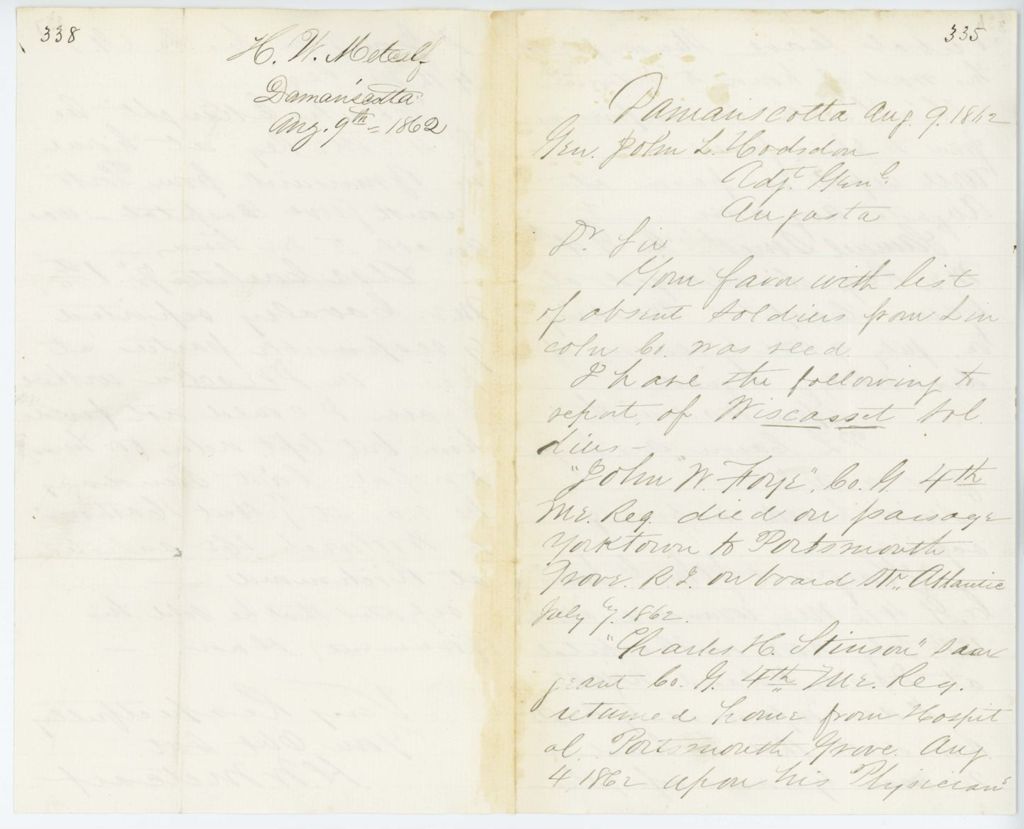 338
H. W. Metcalf
Damariscotta
Aug. 9th = 1862
335
Damariscotta Aug. 9. 1862
Gen. John L. Hodsdon
Adjt. Genl.
Augusta
Dr. Sir
Your favor with list
of absent soldiers from Lin
coln Co. was recd.
I have the following to
report of Wiscasset sol
diers -
"John W. Foye". Co. G 4th
Me. Reg. died on passage
Yorktown to Portsmouth
Grove. R. I. on board Str. Atlantic
July 7. 1862.
"Charles H. Stinson" Saar
geant Co. G. 4th Me. Reg.
returned home from Hospit
al. Portsmouth Grove. Aug
4 1862 upon his "Physician"